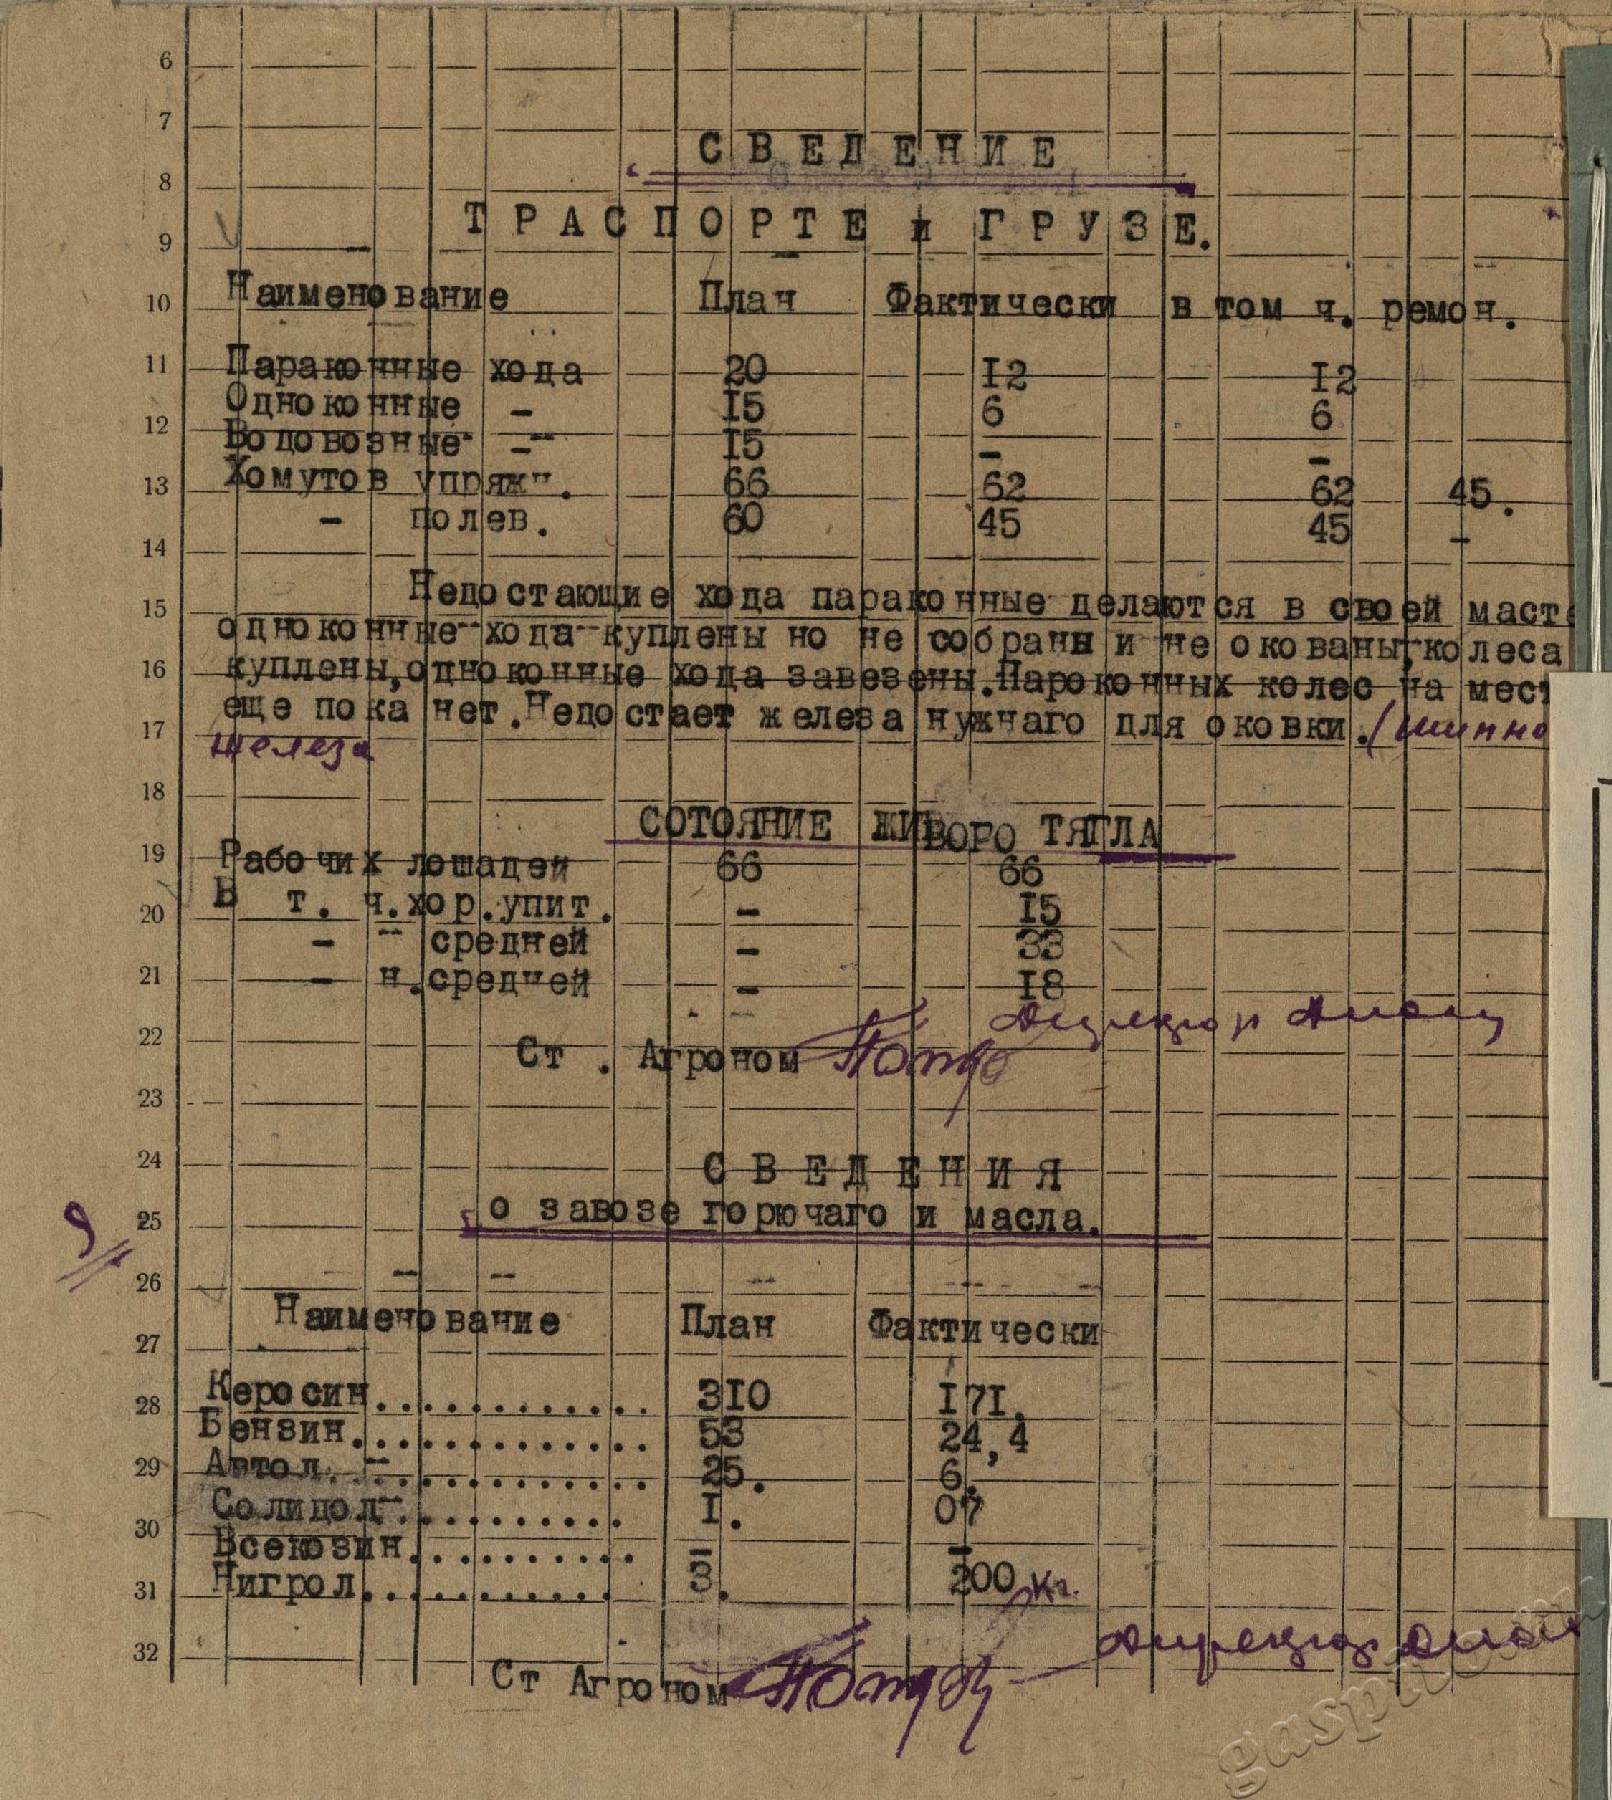 6
7
СВЕДЕНИЕ
8
ТРАСПОРТЕ и ГРУЗЕ.
9
10 Наименование План Фактически в том ч. ремон.
11 Параконные хода 20 12 12
Одноконные - 15 6 6
12
Водовозные -"- 15 - -
13 Хомутов упряжн. 66 62 62 45.
- полев. 60 45 45 -
14
Недостающие хода параконные делаются в своей маст
15
одноконные хода куплены но не собраны и не окованы, колеса
16 куплены, одноконные хода завезены. Пароконных колес на мест
еще пока нет. Недостает железа нужнаго для оковки. (шинно
17
железа
18
СОТОЯНИЕ ЖИВОРО ТЯГЛА
19 Рабочих лошадей 66 66
20 В т. ч. хор. упит. - 15
- " средней - 33
21 - н. средней - 18
Директор
22 Ст. Агроном
23
24 СВЕДЕНИЯ
9 25 о завозе горючаго и масла.
26
Наименование План Фактически
27
28 Керосин............ 310 171.
Бензин............. 53 24,4
29 Автол.............. 25. 6.
Солидол........... 1. 07
30
Всеюзин.......... - -
31 Нигрол........... 3. 200 кг.
32
Ст Агроном Директор
gaspito.ru